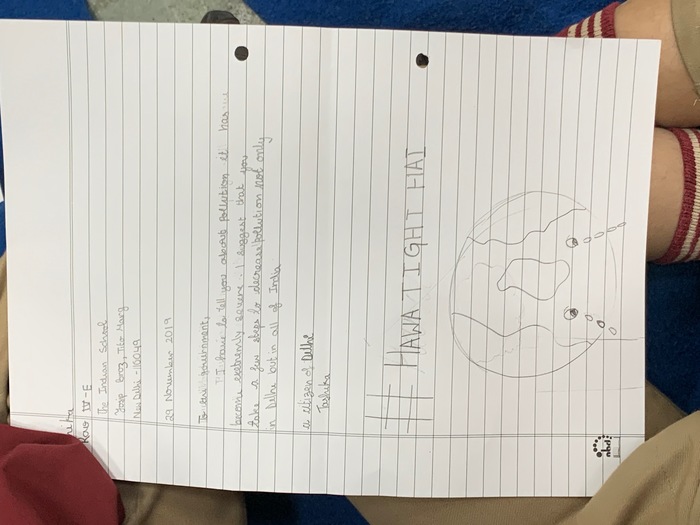 IV-E
The Indian School
Josip Broz, Tito Marg
New Delhi - 110049
29 November 2019
To government,
I have to tell you about pollution it has
become extremely severe. I suggest that you
take a few steps to decrease pollution not only
in Delhi but in all of India
a citizen of Delhi
# HAWA TIGHT HAI
nbd